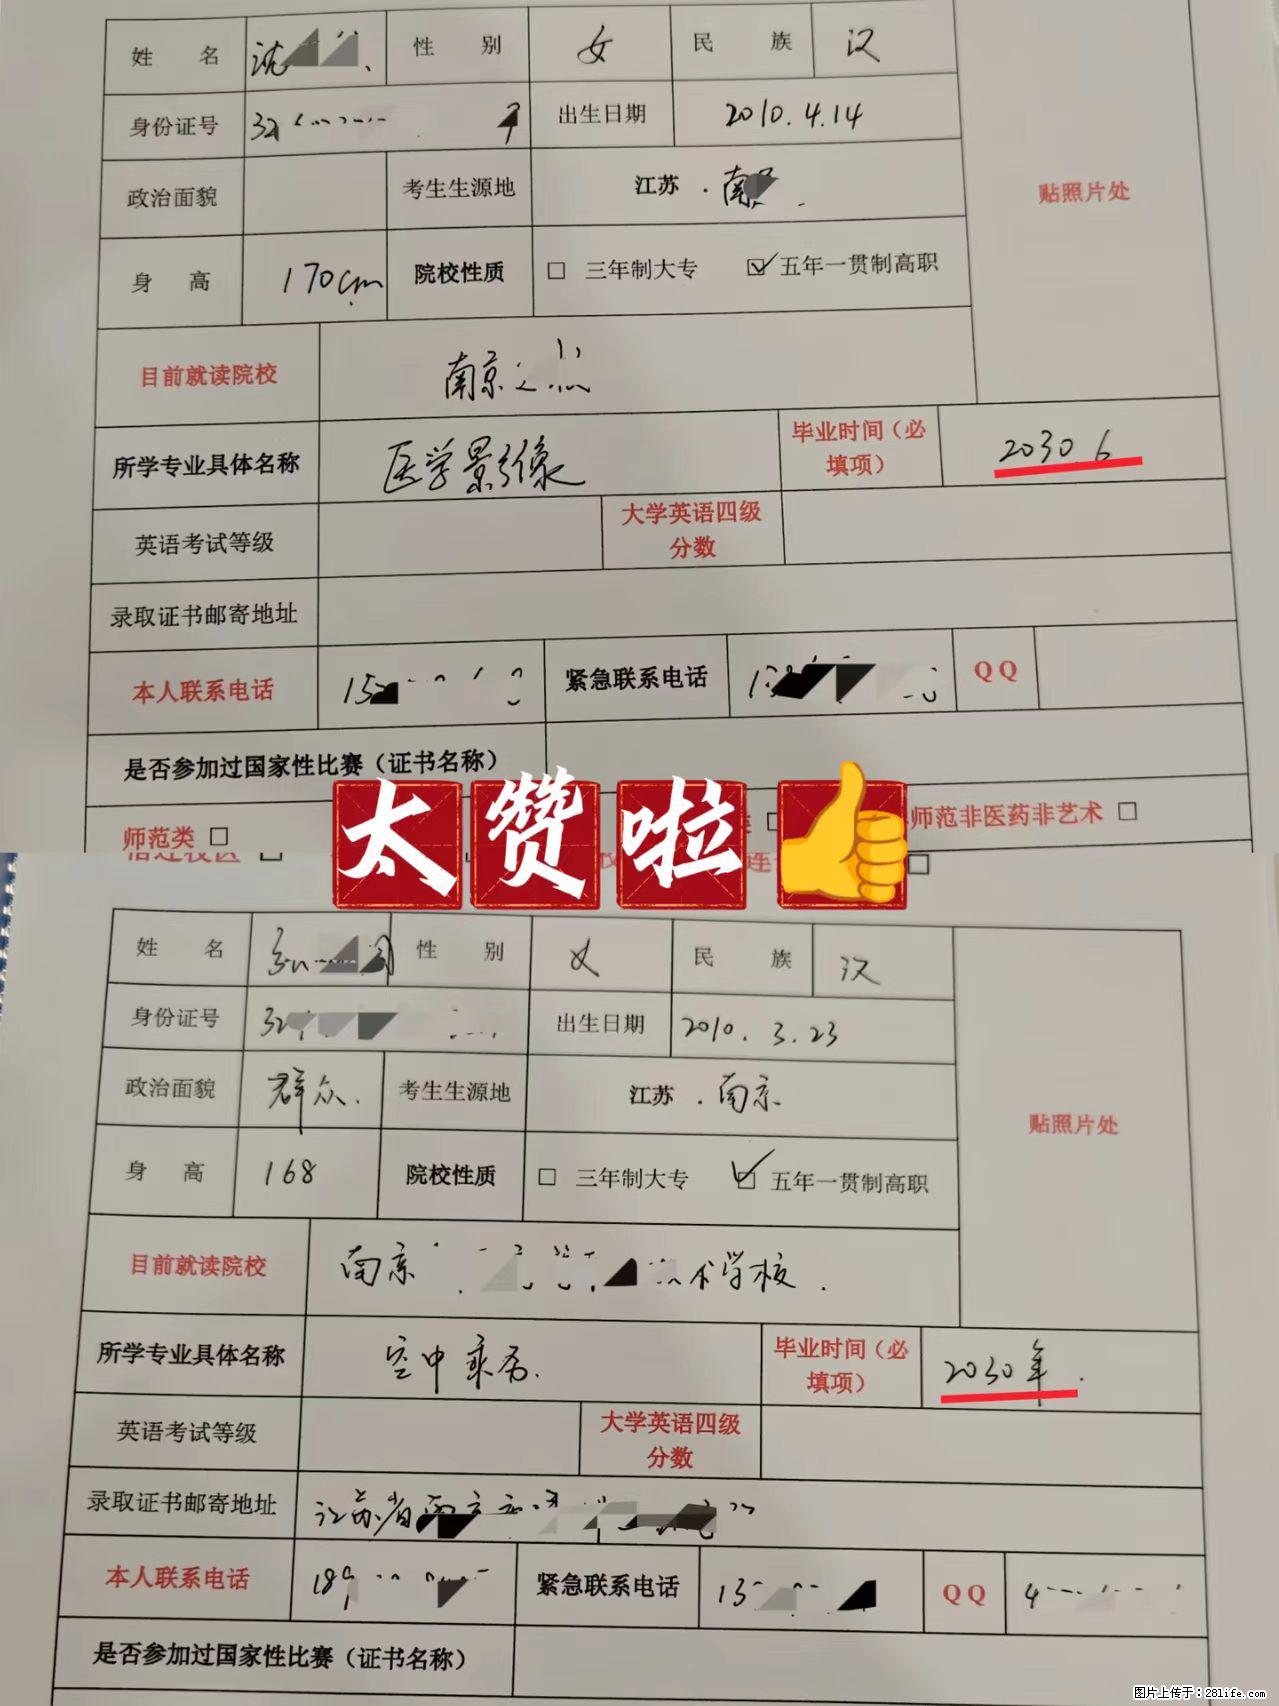 姓 名 沈 性 别 女 民 族 汉
身份证号 32 出生日期 2010.4.14
政治面貌 考生生源地 江苏 . 南 贴照片处
身 高 170cm 院校性质 □ 三年制大专 ☑ 五年一贯制高职
目前就读院校 南京
所学专业具体名称 医学影像 毕业时间（必填项） 2030.6
英语考试等级 大学英语四级分数
录取证书邮寄地址
本人联系电话 15 紧急联系电话 1 QQ
是否参加过国家性比赛（证书名称）
师范类 □ 师范非医药非艺术 □
太赞啦👍
姓 名 性 别 女 民 族 汉
身份证号 32 出生日期 2010.3.23
政治面貌 群众. 考生生源地 江苏 . 南京 贴照片处
身 高 168 院校性质 □ 三年制大专 ☑ 五年一贯制高职
目前就读院校 南京 术学校.
所学专业具体名称 空中乘务. 毕业时间（必填项） 2030年.
英语考试等级 大学英语四级分数
录取证书邮寄地址 江苏省
本人联系电话 189 紧急联系电话 13 QQ 4
是否参加过国家性比赛（证书名称）
图片上传于：281life.com